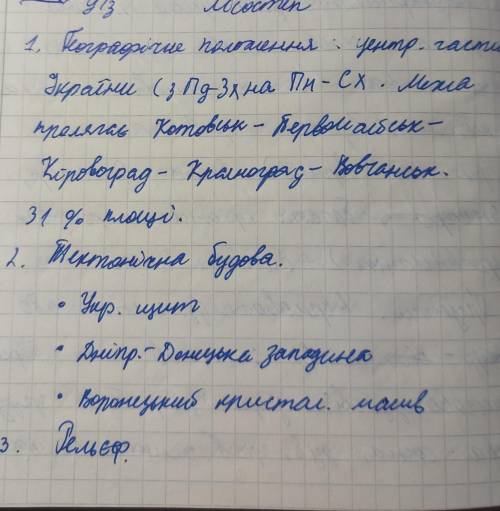 Д/З Лісостеп
1. Географічне положення: центр. части
України (з Пд-Зх на Пн-Сх. Межа
пролягає Котовськ - Первомайськ -
Кіровоград - Красноград - Вовчанськ.
31 % площі.
2. Тектонічна будова.
• Укр. щит
• Дніпр.-Донецька западина
• Воронецький кристал. масив
3. Рельєф.